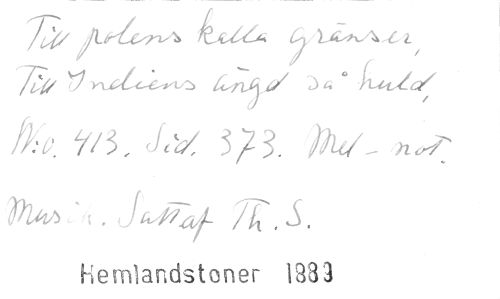 Till polens kalla gränser,
Till Indiens ängd så huld,
N:o. 413. Sid. 373. Mel-not.
Musik. Satt af Th. S.
Hemlandstoner 1889